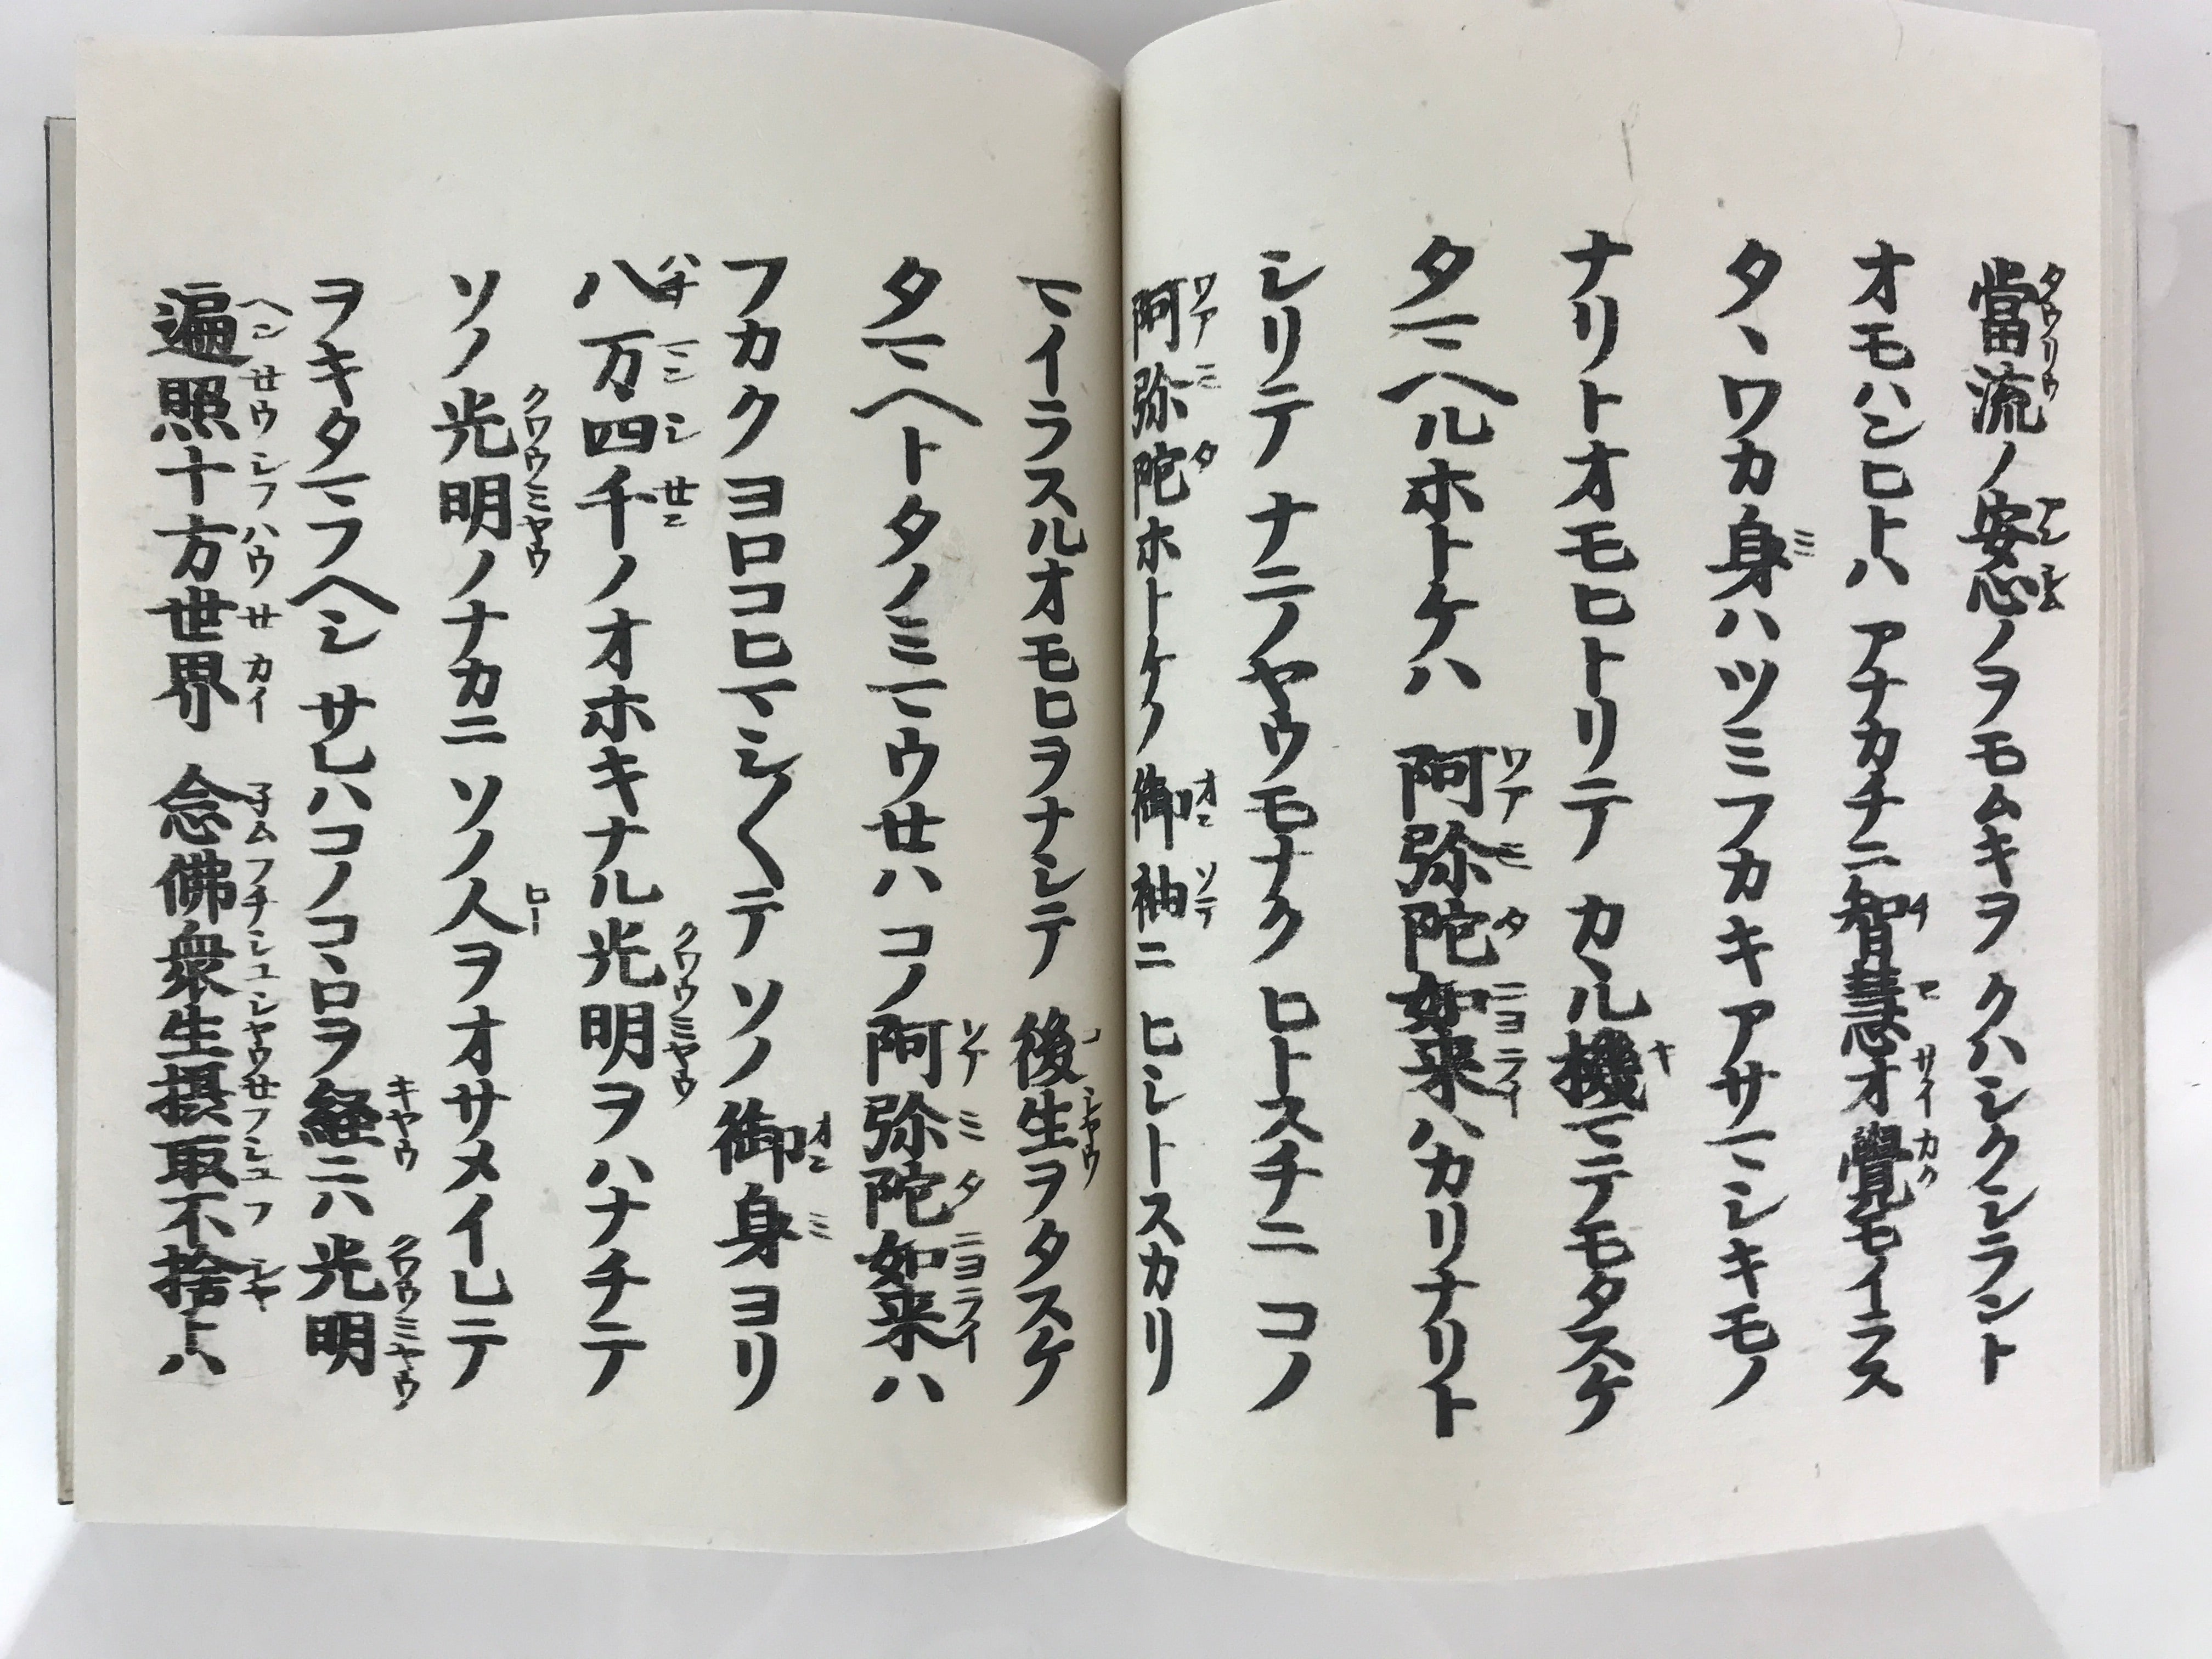 當流ノ安心ノヲモムキヲ クハシクシラント
オモハンヒトハ アナカチニ智慧才覺モイラス
タヽワカ身ハツミフカキアサマシキモノ
ナリトオモヒトリテ カヽル機マテモタスケ
タマヘルホトケハ 阿弥陀如来ハカリナリト
シリテ ナニノヤウモナク ヒトスチニ コノ
阿弥陀ホトケノ御袖ニ ヒシトスカリ
マイラスルオモヒヲナシテ 後生ヲタスケ
タマヘトタノミマウセハ コノ阿弥陀如来ハ
フカクヨロコヒマシ〱テ ソノ御身ヨリ
八万四千ノオホキナル光明ヲハナチテ
ソノ光明ノナカニ ソノ人ヲオサメイレテ
ヲキタマフヘシ サレハコノコヽロヲ 経ニハ 光明
遍照十方世界 念佛衆生摂取不捨トハ